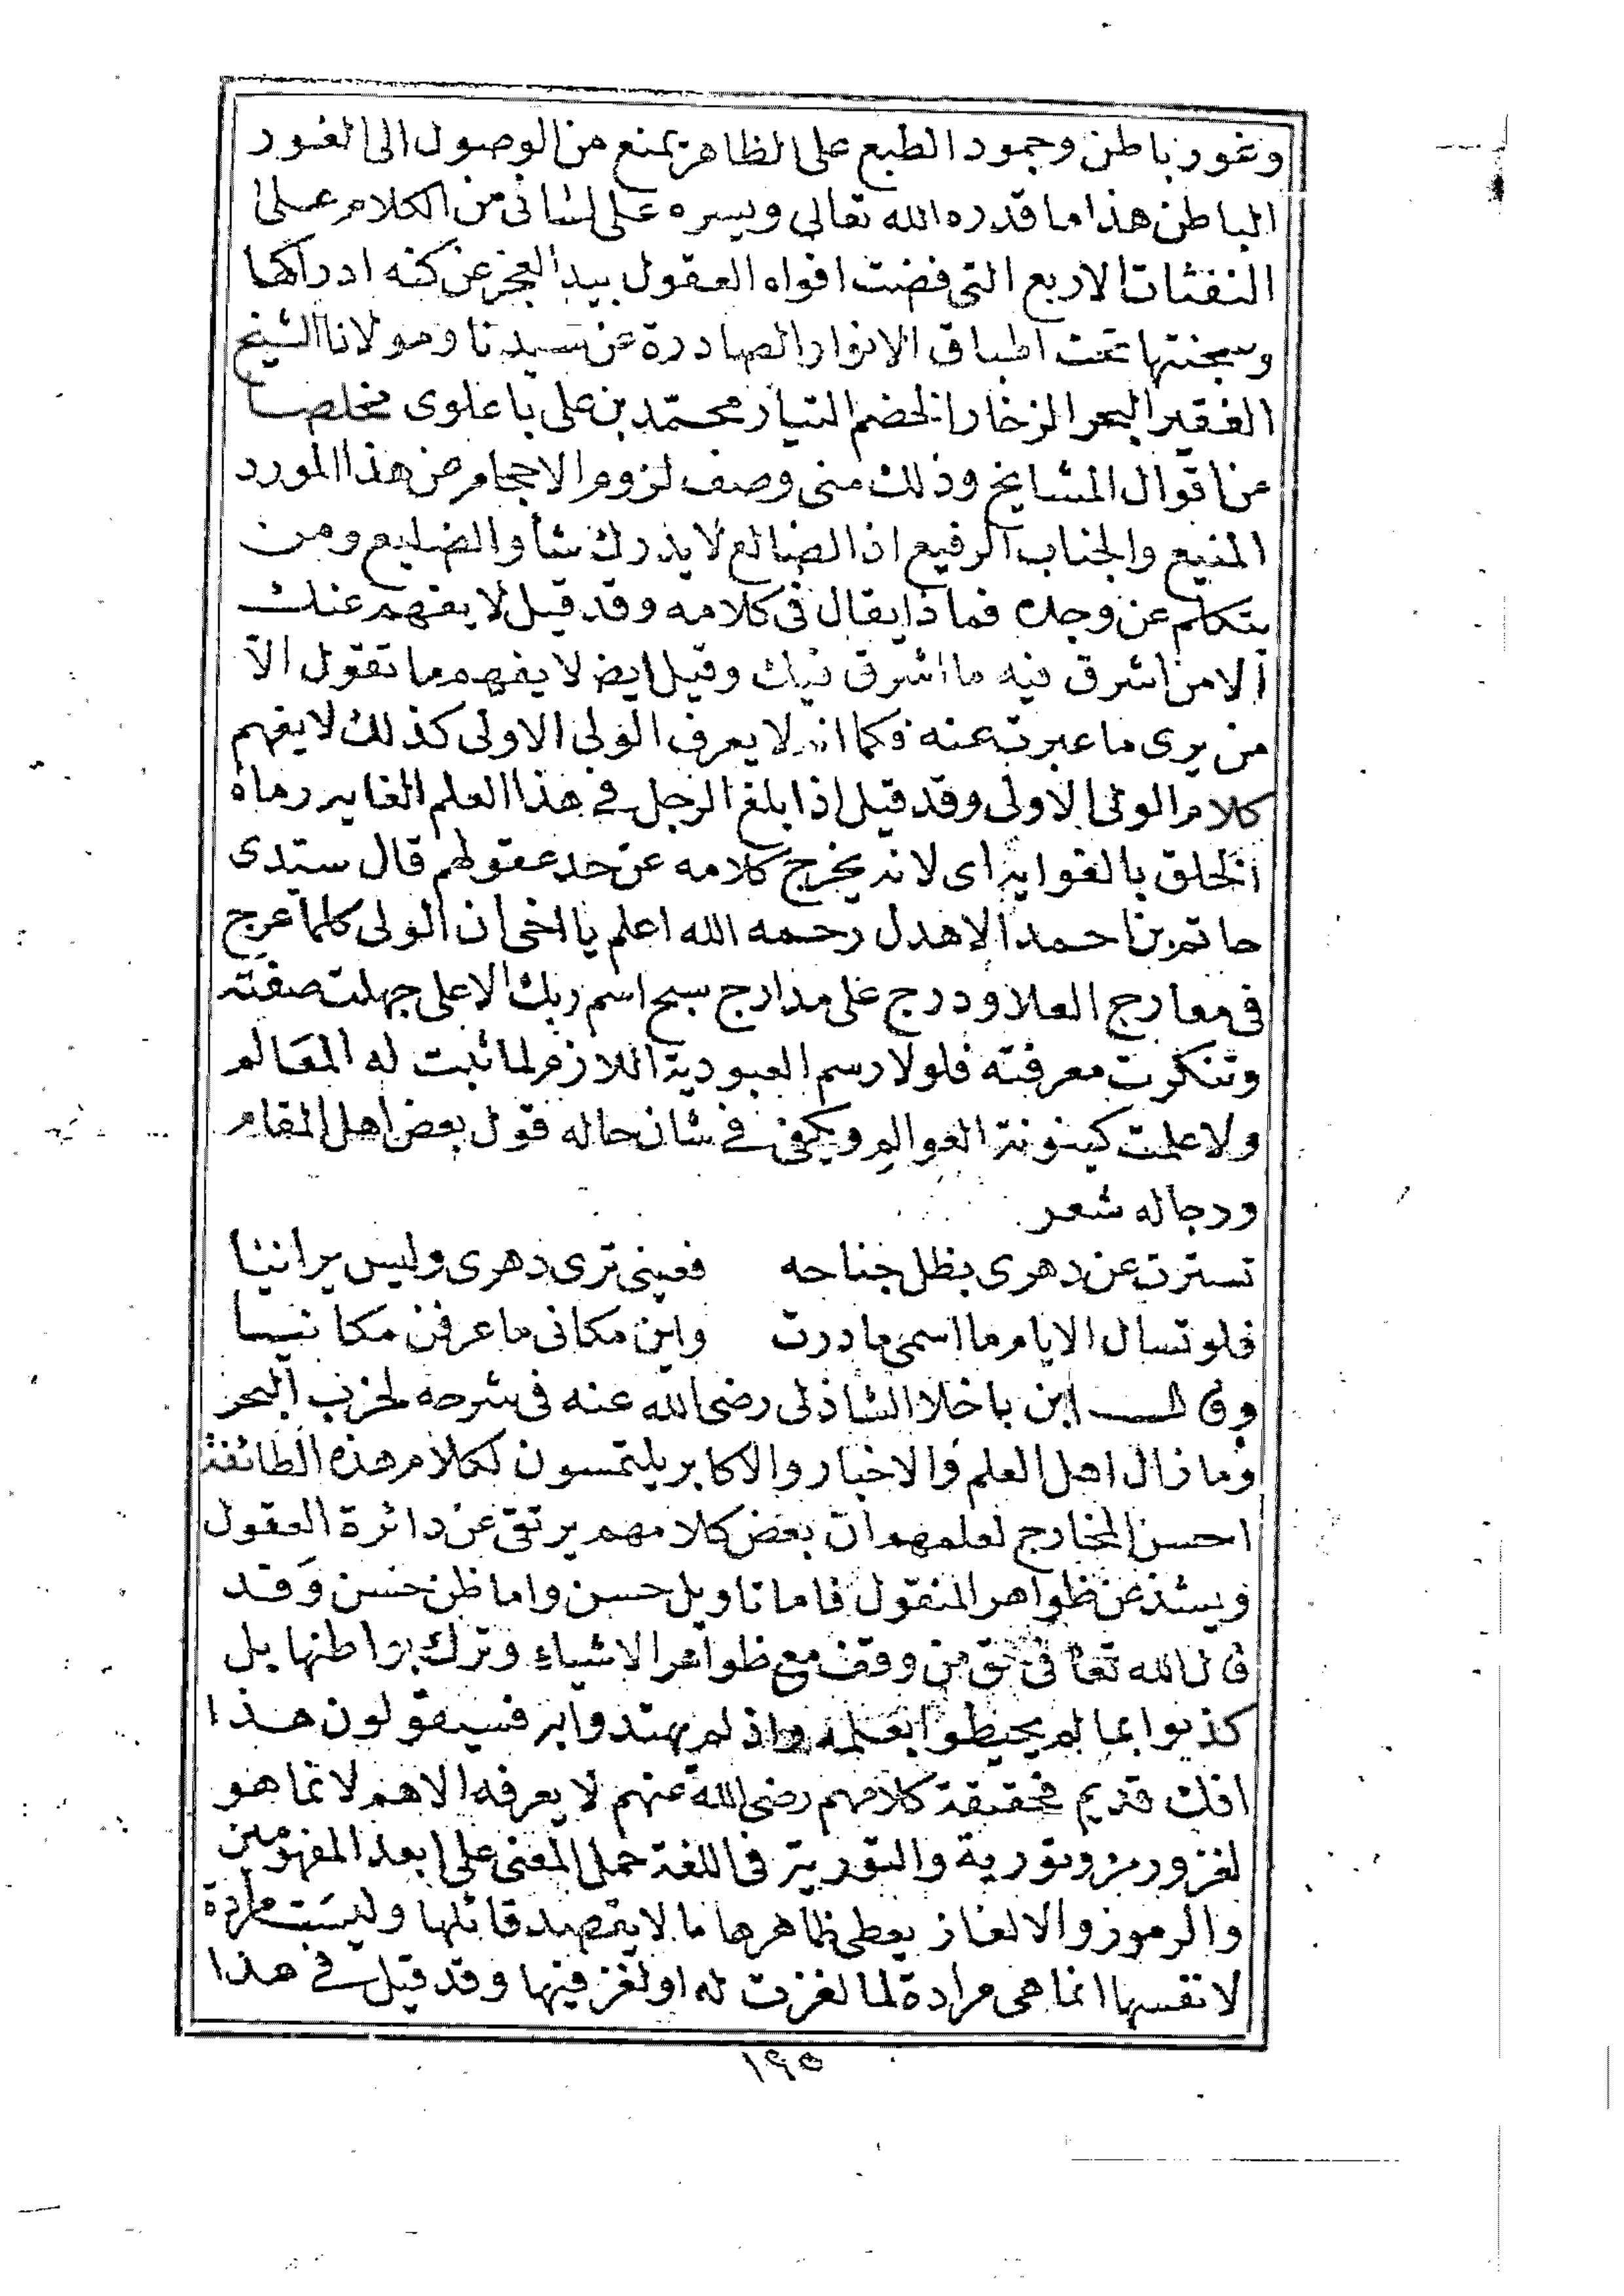 وغور باطن وجمود الطبع على الظاهر يمنع من الوصول الى الغور
الباطن هذا ما قدره الله تعالى ويسره على لسانى من الكلام على
النفثات الاربع التى فضت افواه العقول بيد العجز عن كنه ادراكها
وسجنتها تحت اطباق الانوار الصادرة عن سيدنا ومولانا الشيخ
الفقير البحر الزخار الخضم التيار محمد بن على باعلوى مخلصا
من اقوال المشايخ وذلك منى وصف لزوم الاحجام من هذا المورد
المنيع والجناب الرفيع اذ الضالع لا يدرك شأو الضليع ومن
يتكلم عن وجده فماذا يقال فى كلامه وقد قيل لا يفهم عنك
الا من اشرق فيه ما اشرق فيك وقيل ايض لا يفهم ما تقول الا
من يرى ما عبرت عنه فكما انه لا يعرف الولى الا ولى كذلك لا يفهم
كلام الولى الا ولى وقد قيل اذا بلغ الرجل فى هذا العلم الغايه رماه
الخلق بالغوايه اى لانه يخرج كلامه عن حد عقولهم قال سيدى
حاتم بن احمد الاهدل رحمه الله اعلم يا اخى ان الولى كلما عرج
فى معارج العلا ودرج على مدارج سبح اسم ربك الاعلى جهلت صفته
وتنكرت معرفته فلولا رسم العبودية اللازم لما ثبت له المعالم
ولا علمت كينونة العوالم ويكفى فى شان حاله قول بعض اهل المقام
ورجاله شعر
تسترت عن دهرى بظل جناحه فعينى ترى دهرى وليس يرانيا
فلو تسال الايام ما اسمى ما درت واين مكانى ما عرفن مكانيا
وقال ابن باخلا الشاذلى رضى الله عنه فى شرحه لحزب البحر
وما زال اهل العلم والاخيار والاكابر يلتمسون لكلام هذه الطائفة
احسن المخارج لعلمهم ان بعض كلامهم يرتقى عن دائرة العقول
ويشذ عن ظواهر المنقول فاما تاويل حسن واما ظن حسن وقد
قال الله تعا فى حق من وقف مع ظواهر الاشياء وترك بواطنها بل
كذبوا بما لم يحيطوا بعلمه واذ لم يهتدوا به فسيقولون هذا
افك قديم فحقيقة كلامهم رضى الله عنهم لا يعرفه الا هم لانما هو
لغز ورمز وتورية والتورية فى اللغة حمل المعنى على ابعد المفهومين
والرموز والالغاز يعطى ظاهرها ما لا يقصد قائلها وليست مرادة
لانفسها انما هى مرادة لما لغزت له او لغز فيها وقد قيل فى هذا
١٩٥